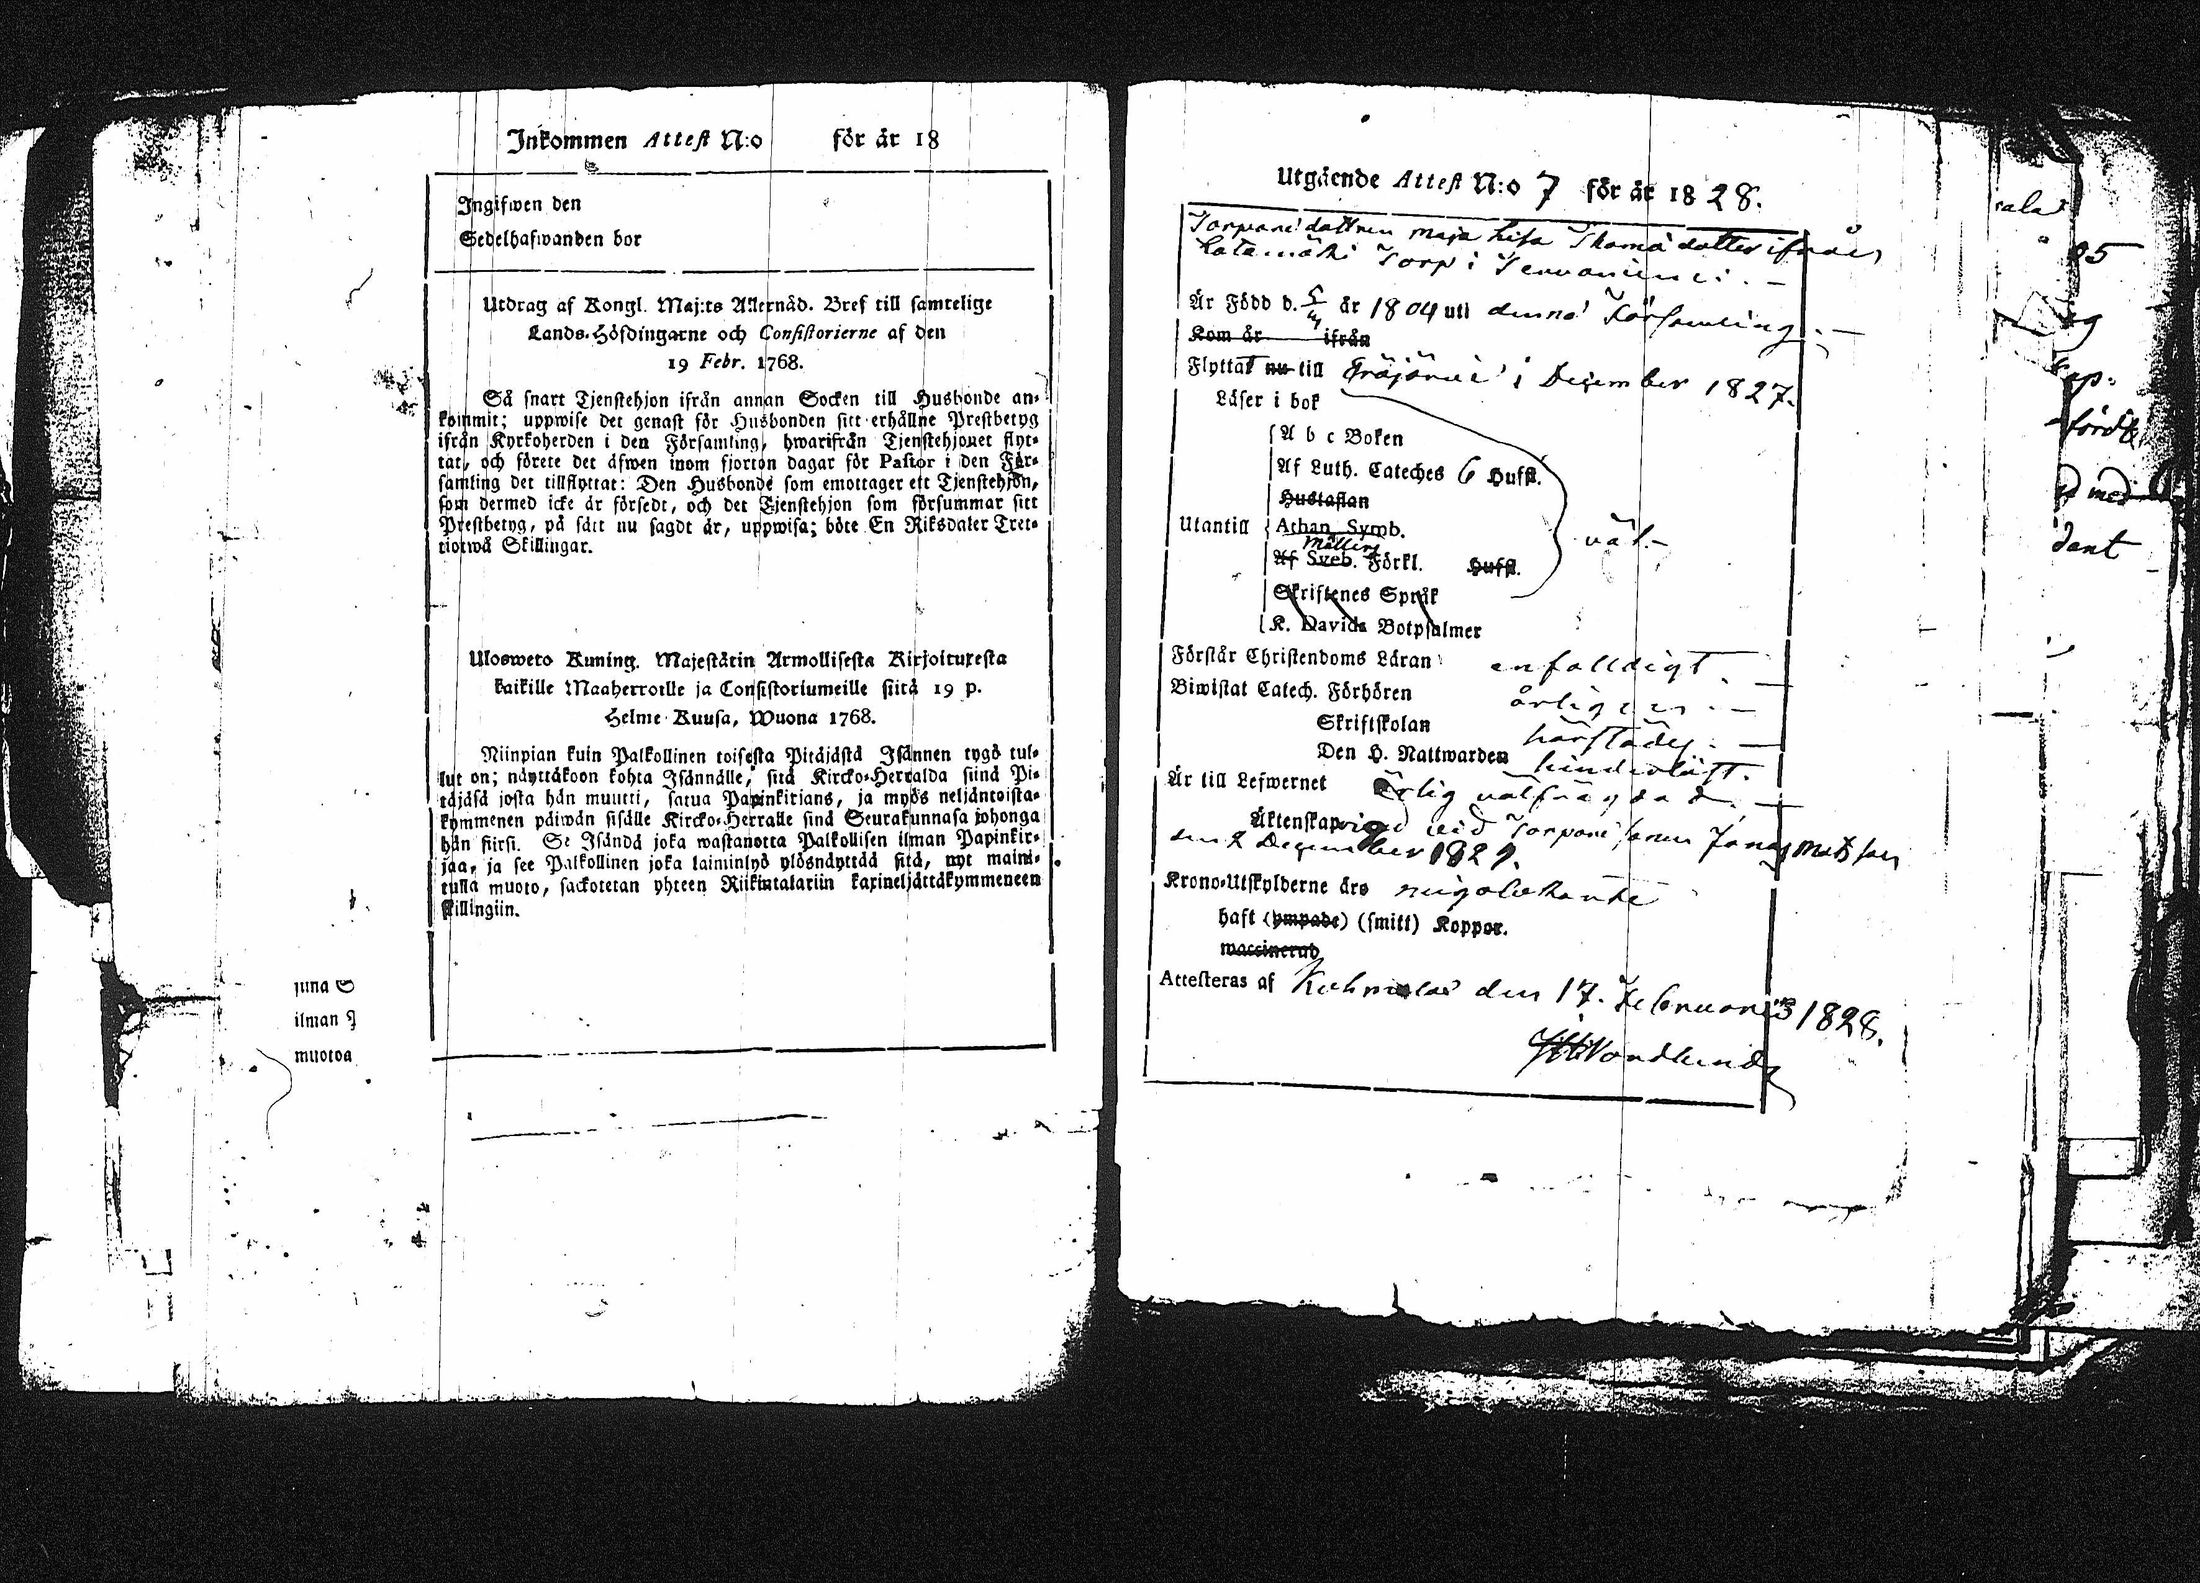 Inkommen Attest N:o för år 18
Ingifwen den
Sedelhafwanden bor
Utdrag af Kongl. Maj:ts Allernåd. Bref till samtelige
Lands-Höfdingarne och Consistorierne af den
19 Febr. 1768.
Så snart Tjenstehjon ifrån annan Socken till Husbonde an-
kommit; uppwise det genast för Husbonden sitt erhållne Prestbetyg
ifrån Kyrkoherden i den Församling, hwarifrån Tjenstehjonet flyt-
tat, och förete det äfwen inom fjorton dagar för Pastor i den För-
samling det tillflyttat: Den Husbonde som emottager ett Tjenstehjon,
som dermed icke är försedt, och det Tjenstehjon som försummar sitt
Prestbetyg, på sätt nu sagdt är, uppwisa; böte En Riksdaler Tret-
tiotwå Skillingar.
Ulosweto Kuning. Majestätin Armollisesta Kirjoituxesta
kaikille Maaherroille ja Consistoriumeille siitä 19 p.
Helme-Kuusa, Wuona 1768.
Niinpian kuin Palkollinen toisesta Pitäjästä Isännen tygö tul-
lut on; näyttäkoon kohta Isännälle, sitä Kircko-Herralda siinä Pi-
täjäsä josta hän muutti, satua Papinkirjans, ja myös neljäntoista-
kymmenen päiwän sisälle Kircko-Herralle siinä Seurakunnasa johonga
hän siirsi. Se Isändä joka wastanotta Palkollisen ilman Papinkir-
jaa, ja see Palkollinen joka laiminlyö ylösnäyttää sitä, nyt maini-
tulla muoto, sackotetan yhteen Riikintalariin kaxineljättäkymmeneen
skillingiin.
juna S
ilman P
muotoa
Utgående Attest N:o 7 för år 1828.
Torpare dottren Maja Lisa Thomä dotter ifrån
Torp i
Är Född d. 5/4 år 1804 uti denna Församling.
Kom år ifrån
Flyttat nu till Gräjärvi i December 1827.
Läser i bok
A b c Boken
Af Luth. Cateches 6 Hufst.
Hustaflan
Utantill Athan. Symb.
Möllers
Af Sveb. Förkl. Hufst.
Skriftenes Språk
K. Davids Botpsalmer
väl.
Förstår Christendoms Läran enfalldigt.
Biwistat Catech. Förhören årligen.
Skriftskolan härstädes.
Den H. Nattwarden hinderlöst.
Är till Lefwernet Ärlig välfrägdad.
Äktenskap vigd vid Torpare sonen Jonas Matsson
den 2 December 1827.
Krono-Utskylderne äro
haft (ympade) (smitt) Koppor.
waccinerad
Attesteras af Kuhmolax den 17. Februarii 1828.
Nordlund
95
förd
med